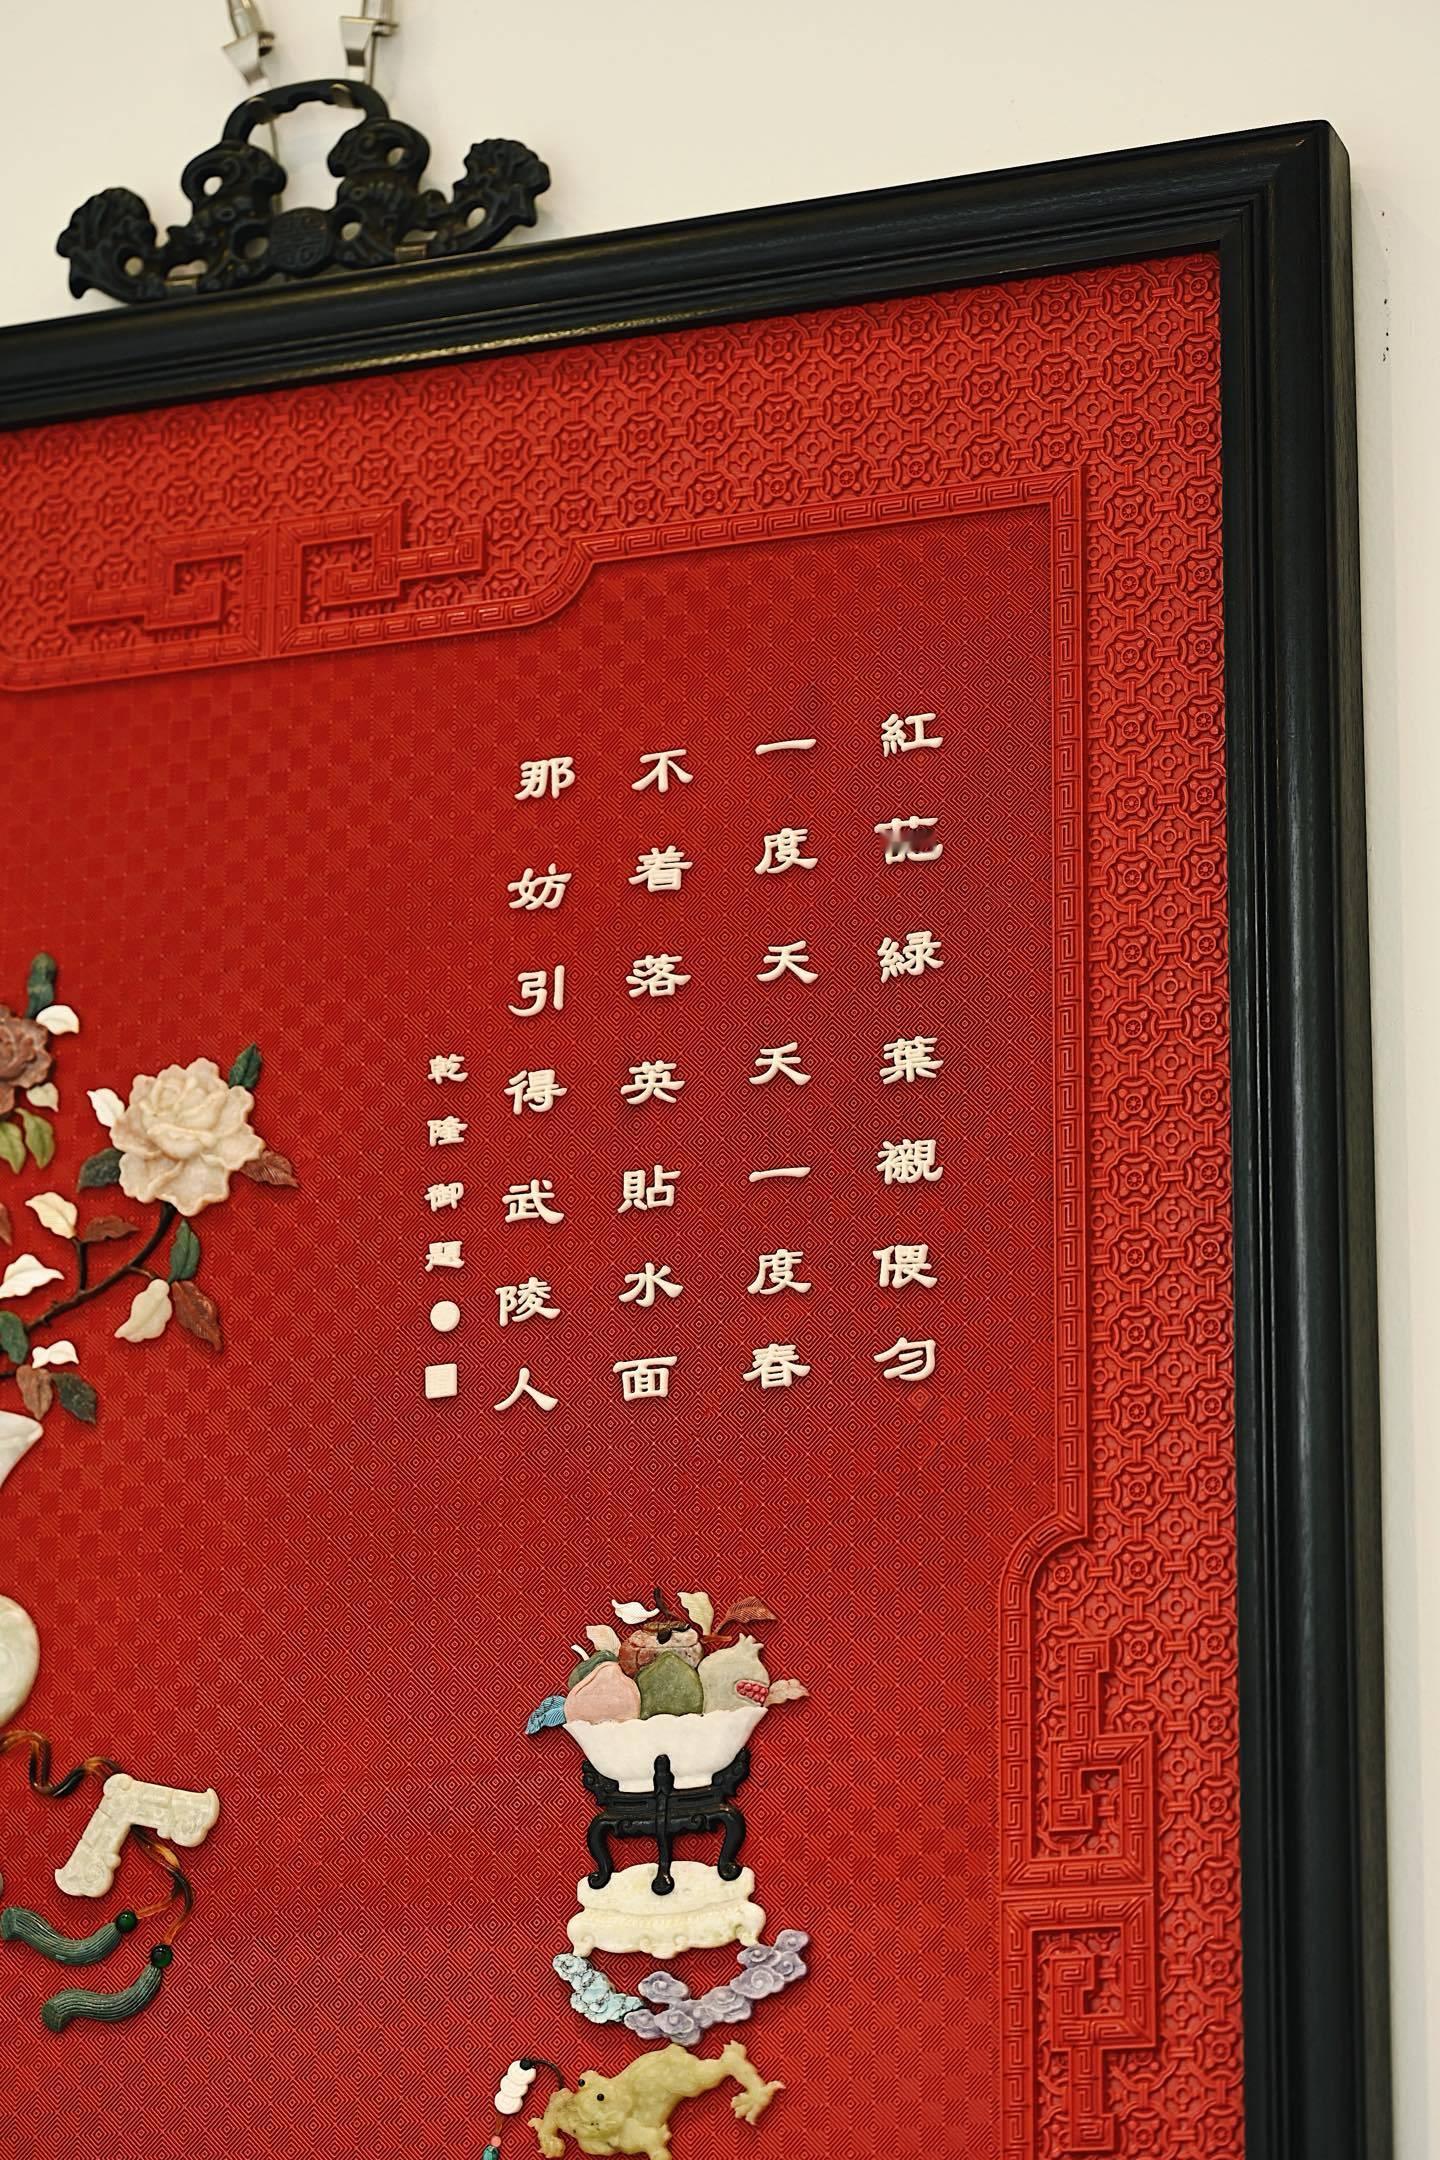 紅綠葉襯偎勻
一度天天一度春
不着落英貼水面
那妨引得武陵人
乾隆御題